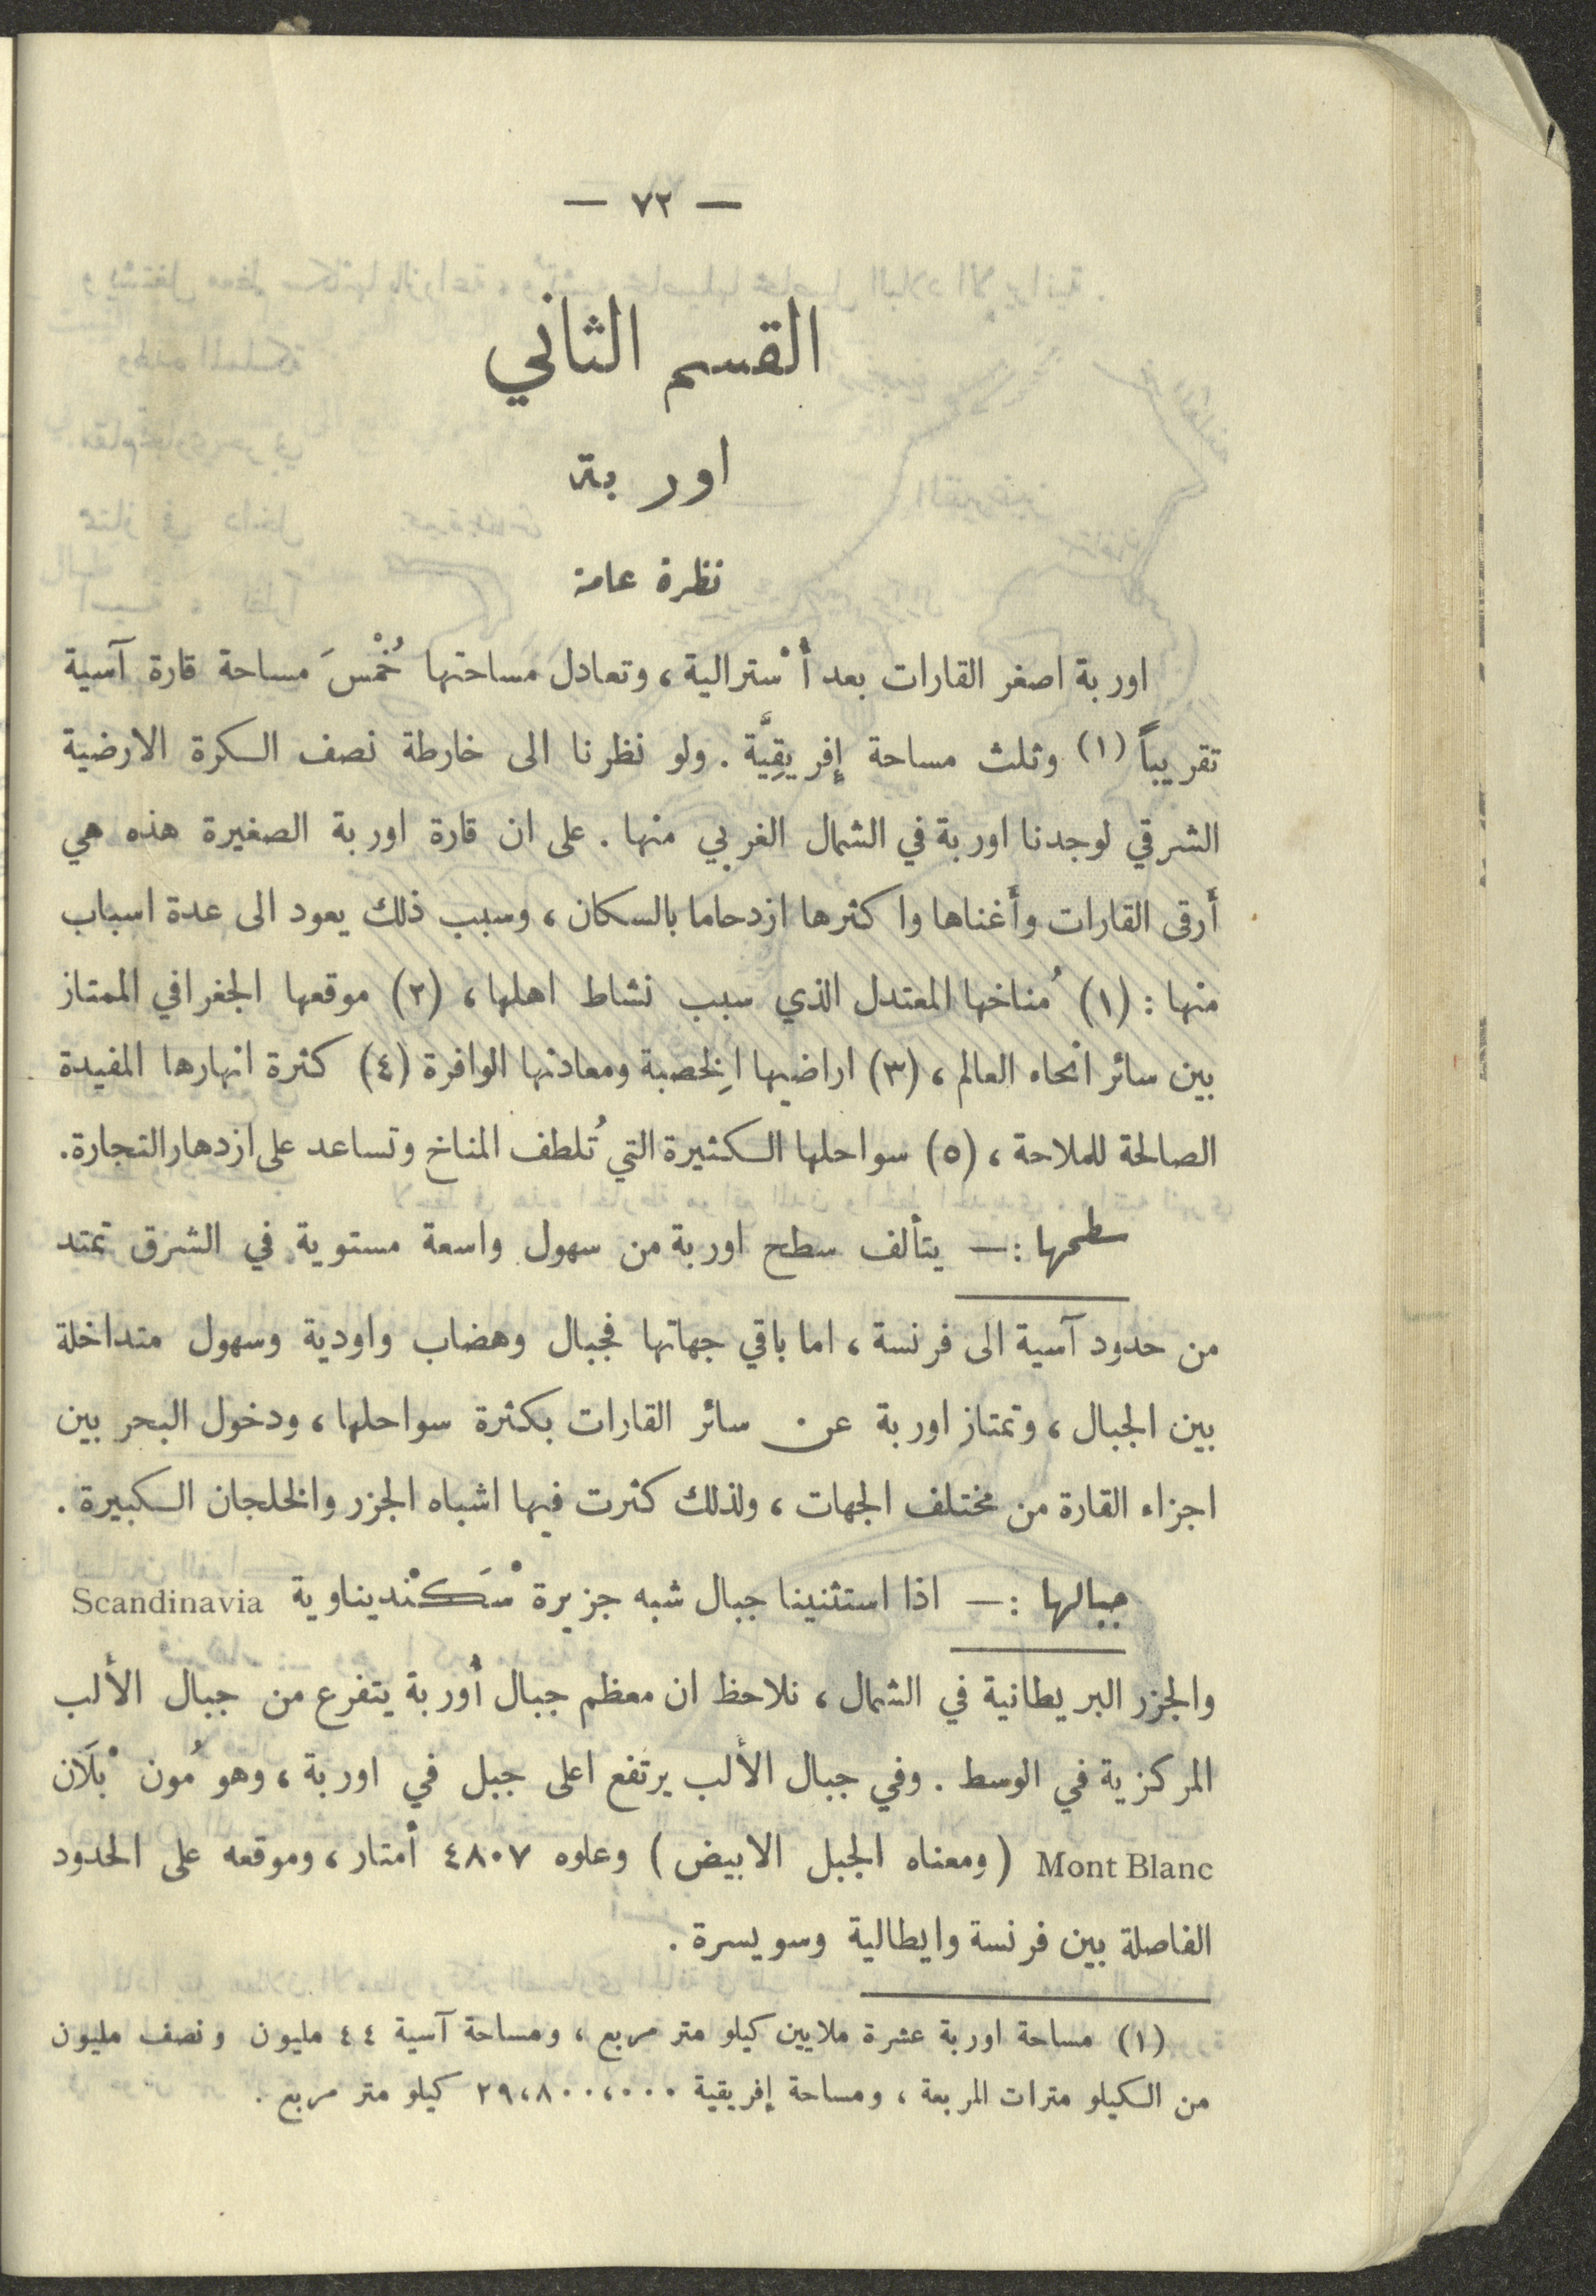 — ٧٢ —
القسم الثاني
اوربة
نظرة عامة
اوربة اصغر القارات بعد أُسْترالية، وتعادل مساحتها خُمْسَ مساحة قارة آسية
تقريباً (١) وثلث مساحة إفريقِيَّة. ولو نظرنا الى خارطة نصف الكرة الارضية
الشرقي لوجدنا اوربة في الشمال الغربي منها. على ان قارة اوربة الصغيرة هذه هي
أَرقى القارات وأَغناها واكثرها ازدحاما بالسكان، وسبب ذلك يعود الى عدة اسباب
منها: (١) مُناخها المعتدل الذي سبب نشاط اهلها، (٢) موقعها الجغرافي الممتاز
بين سائر انحاء العالم، (٣) اراضيها الخِصبة ومعادنها الوافرة (٤) كثرة انهارها المفيدة
الصالحة للملاحة، (٥) سواحلها الكثيرة التي تُلطف المناخ وتساعد على ازدهار التجارة.
سطحها: — يتألف سطح اوربة من سهول واسعة مستوية في الشرق تمتد
من حدود آسية الى فرنسة، اما باقي جهاتها فجبال وهضاب واودية وسهول متداخلة
بين الجبال، وتمتاز اوربة عن سائر القارات بكثرة سواحلها، ودخول البحر بين
اجزاء القارة من مختلف الجهات، ولذلك كثرت فيها اشباه الجزر والخلجان الكبيرة.
جبالها: — اذا استثنينا جبال شبه جزيرة سْكَنْديناوية Scandinavia
والجزر البريطانية في الشمال، نلاحظ ان معظم جبال أوربة يتفرع من جبال الألب
المركزية في الوسط. وفي جبال الألب يرتفع اعلى جبل في اوربة، وهو مُون بْلَان
Mont Blanc (ومعناه الجبل الابيض) وعلوه ٤٨٠٧ أمتار، وموقعه على الحدود
الفاصلة بين فرنسة وايطالية وسويسرة.
(١) مساحة اوربة عشرة ملايين كيلو متر مربع، ومساحة آسية ٤٤ مليون ونصف مليون
من الكيلو مترات المربعة، ومساحة إفريقية ٢٩،٨٠٠،٠٠٠ كيلو متر مربع.